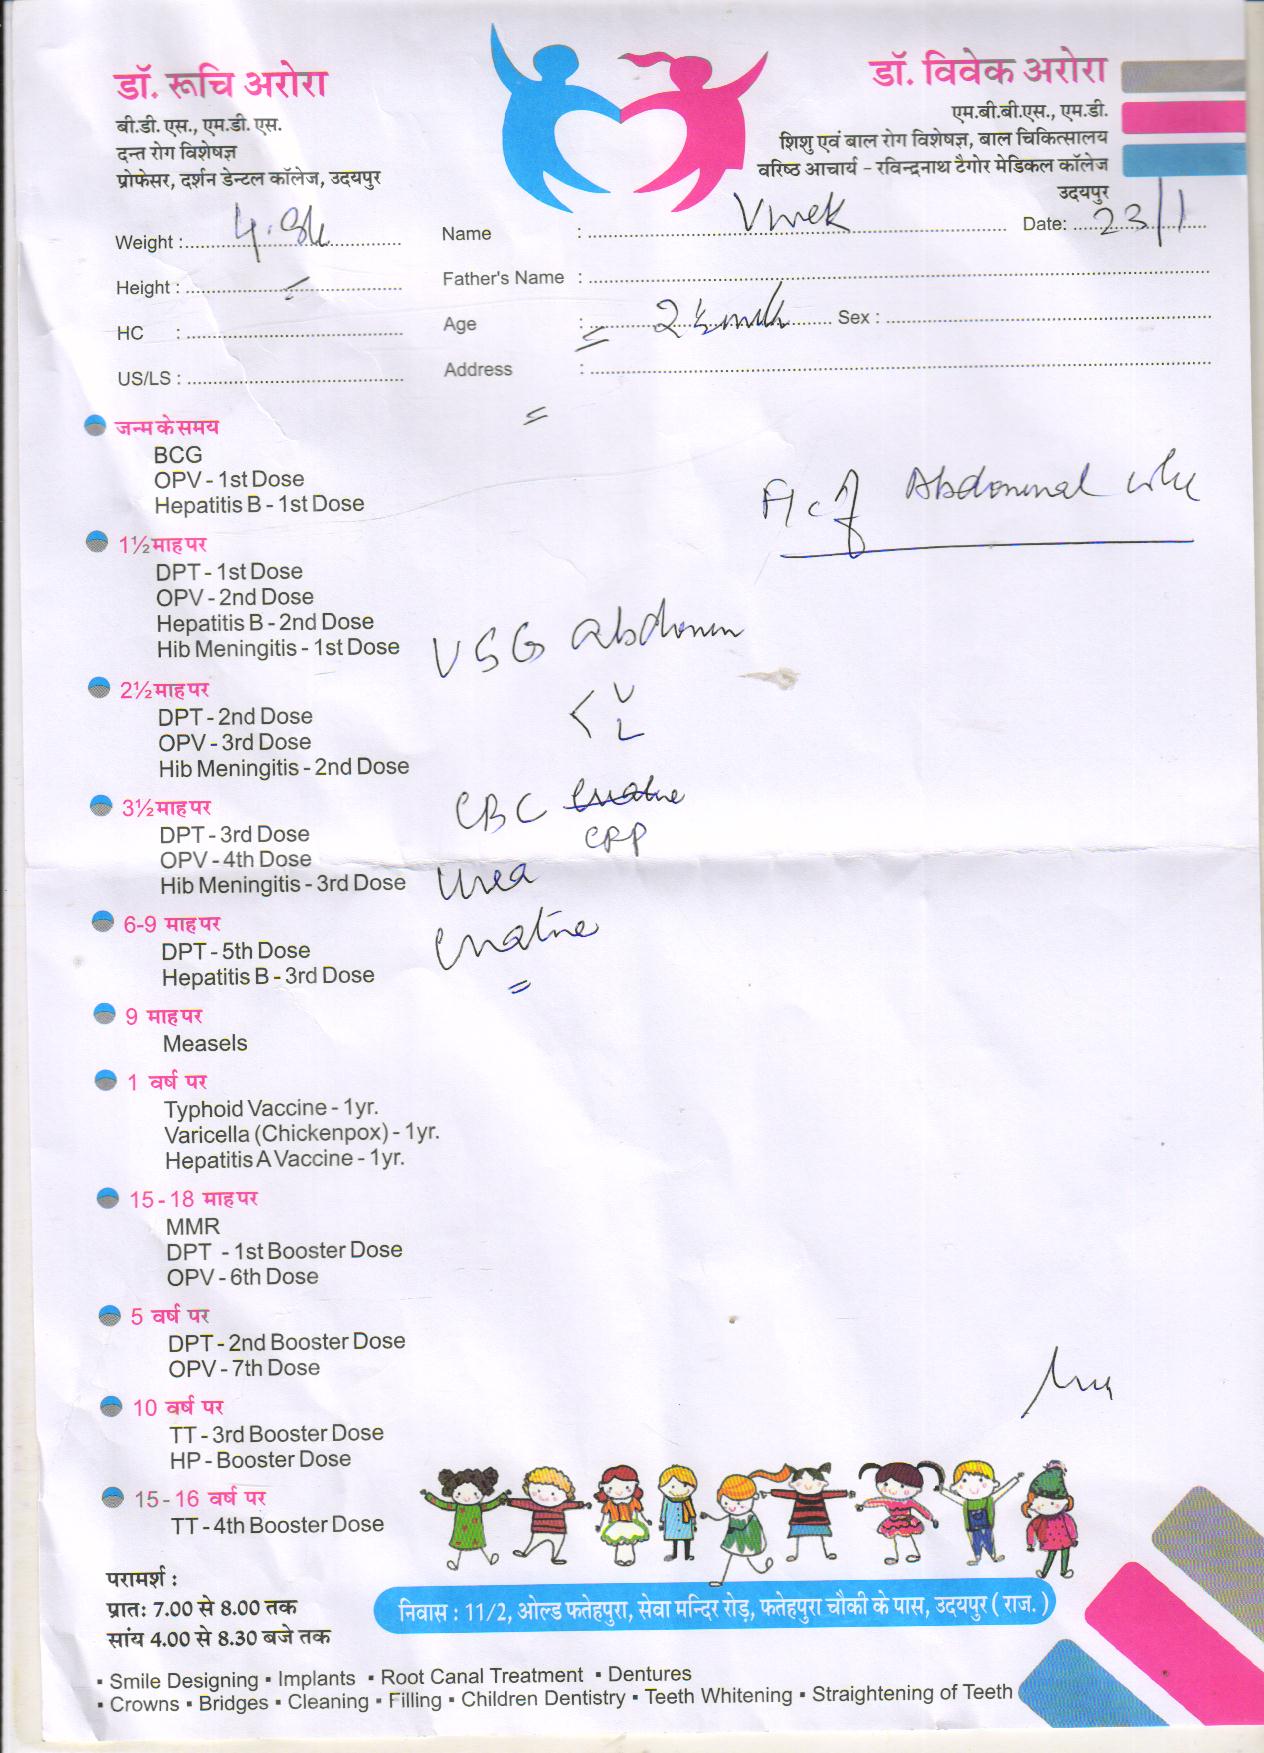 डॉ. रूचि अरोरा
बी.डी. एस., एम.डी. एस.
दन्त रोग विशेषज्ञ
प्रोफेसर, दर्शन डेन्टल कॉलेज, उदयपुर
डॉ. विवेक अरोरा
एम.बी.बी.एस., एम.डी.
शिशु एवं बाल रोग विशेषज्ञ, बाल चिकित्सालय
वरिष्ठ आचार्य - रविन्द्रनाथ टैगोर मेडिकल कॉलेज
उदयपुर
Weight : Name : Vivek Date: 23/1
Height : Father's Name :
HC : Age : 2½ Sex :
US/LS : Address :
जन्म के समय
BCG
OPV - 1st Dose
Hepatitis B - 1st Dose
Abdominal
1½ माह पर
DPT - 1st Dose
OPV - 2nd Dose
Hepatitis B - 2nd Dose
Hib Meningitis - 1st Dose
USG Abdomen
2½ माह पर
DPT - 2nd Dose
OPV - 3rd Dose
Hib Meningitis - 2nd Dose
< U
L
3½ माह पर
DPT - 3rd Dose
OPV - 4th Dose
Hib Meningitis - 3rd Dose
CBC
CRP
Urea
6-9 माह पर
DPT - 5th Dose
Hepatitis B - 3rd Dose
9 माह पर
Measels
1 वर्ष पर
Typhoid Vaccine - 1yr.
Varicella (Chickenpox) - 1yr.
Hepatitis A Vaccine - 1yr.
15-18 माह पर
MMR
DPT - 1st Booster Dose
OPV - 6th Dose
5 वर्ष पर
DPT - 2nd Booster Dose
OPV - 7th Dose
10 वर्ष पर
TT - 3rd Booster Dose
HP - Booster Dose
15-16 वर्ष पर
TT - 4th Booster Dose
परामर्श :
प्रातः 7.00 से 8.00 तक
सांय 4.00 से 8.30 बजे तक
निवास : 11/2, ओल्ड फतेहपुरा, सेवा मन्दिर रोड़, फतेहपुरा चौकी के पास, उदयपुर ( राज. )
▪ Smile Designing ▪ Implants ▪ Root Canal Treatment ▪ Dentures
▪ Crowns ▪ Bridges ▪ Cleaning ▪ Filling ▪ Children Dentistry ▪ Teeth Whitening ▪ Straightening of Teeth